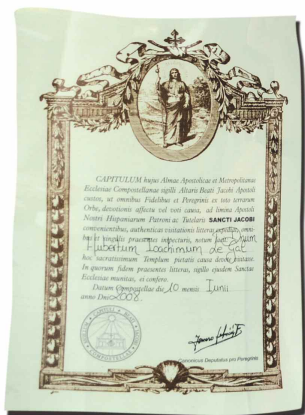 CAPITULUM hujus Almae Apostolicae et Metropolitanae
Ecclesiae Compostellanae sigilli Altaris Beati Jacobi Apostoli
custos, ut omnibus Fidelibus et Peregrinis ex toto terrarum
Orbe, devotionis affectu vel voti causa, ad limina Apostoli
Nostri Hispaniarum Patroni ac Tutelaris SANCTI JACOBI
convenientibus, authenticas visitationis litteras expediat, omni-
bus et singulis praesentes inspecturis, notum facit: Dnum
Hubertum Joachimum de
hoc sacratissimum Templum pietatis causa devote visitasse.
In quorum fidem praesentes litteras, sigillo ejusdem Sanctae
Ecclesiae munitas, ei confero.
Datum Compostellae die 10 mensis Junii
anno Dni 2008
Canonicus Deputatus pro Peregrinis